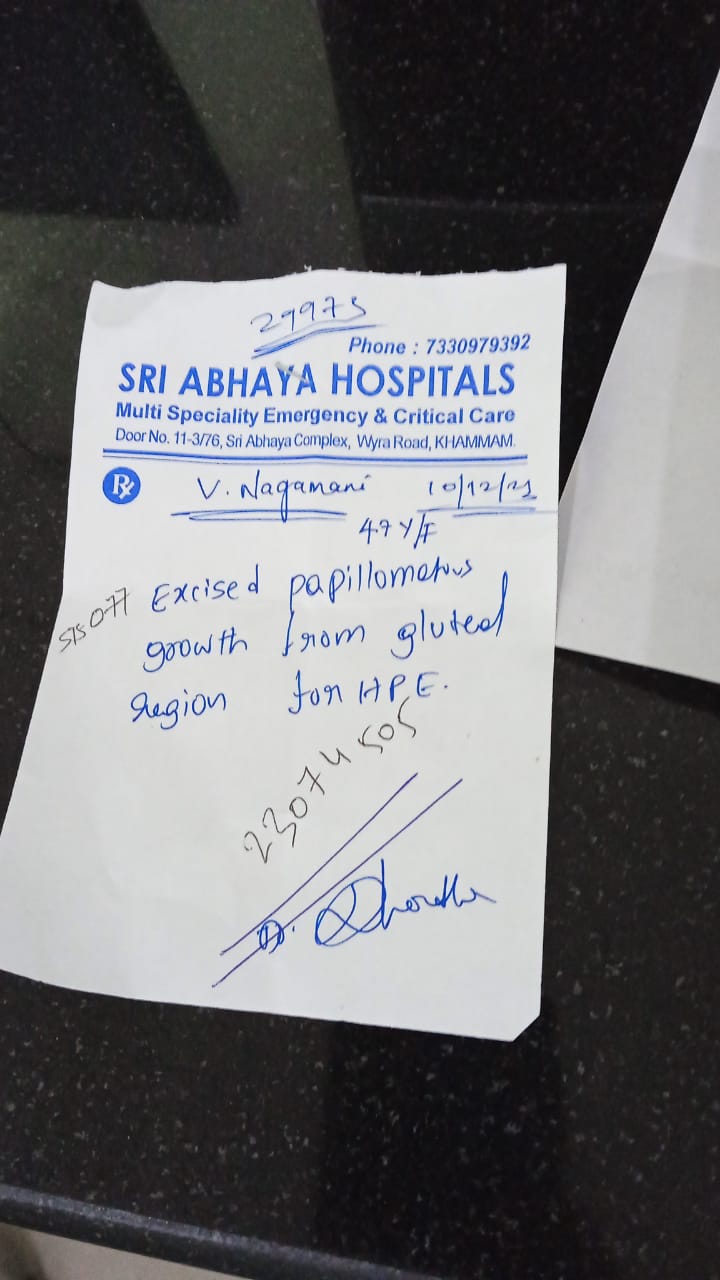 29975
Phone : 7330979392
SRI ABHAYA HOSPITALS
Multi Speciality Emergency & Critical Care
Door No. 11-3/76, Sri Abhaya Complex, Wyra Road, KHAMMAM.
Rx V. Nagamani 10/12/21
47 Y/F
Excised papillomatous
growth from gluteal
region for HPE.
23074505
Dr.